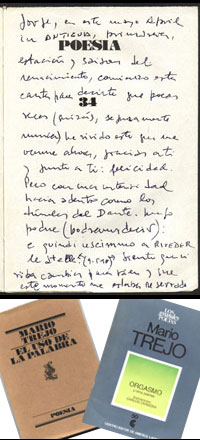 Jorge, en este mayo April
in ANTIGUA, primavera,
POESIA
estación y saison del
renacimiento, comienzo esta
carta para decirte que pocas
34
veces (quizás, seguramente
nunca) he vivido esto que me
viene ahora, gracias a ti
y junto a ti: felicidad
Pero con una intensidad
hacia adentro como los
círculos del Dante. bajo
(podríamos decir):
e quindi uscimmo a RIVEDER
le stelle. Siento que
este momento me estaba reservado
MARIO
TREJO
EL USO DE
LA PALABRA
POESIA
LOS
GRANDES
POETAS
Mario
TREJO
ORGASMO
y otros poemas